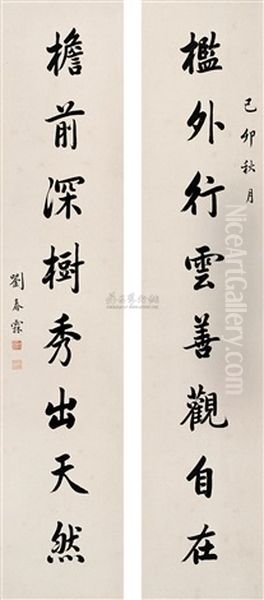 己卯秋月
檻外行雲善觀自在
檐前深樹秀出天然
劉春霖
NiceArtGallery.com
NiceArtGallery.com